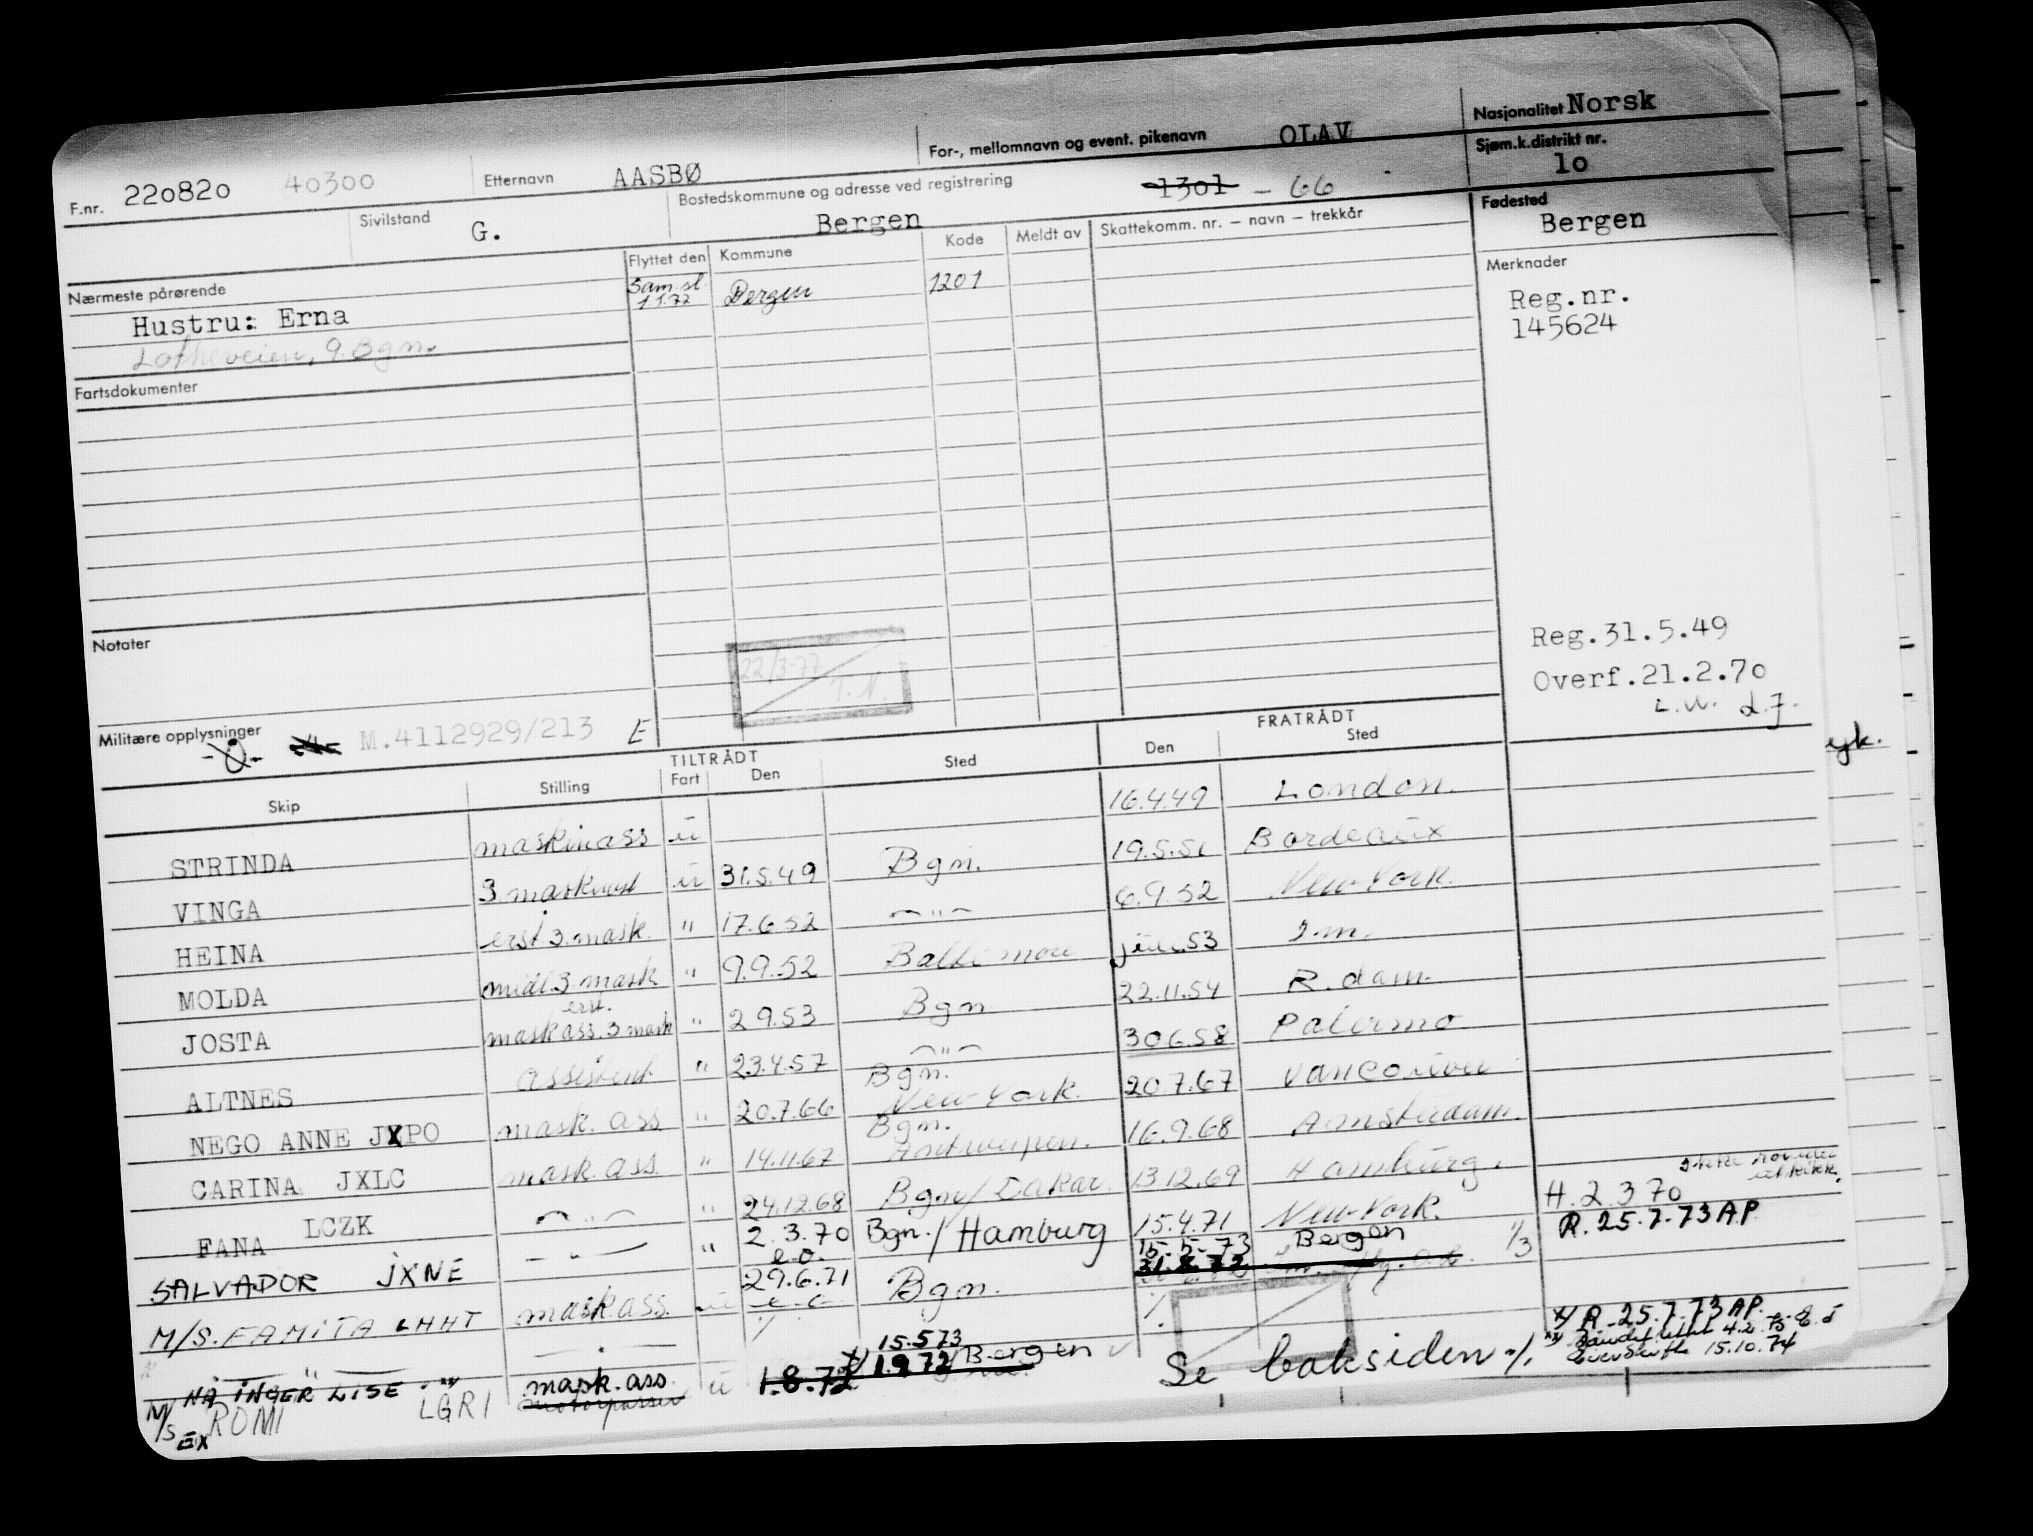 F.nr. 220820 40300 Etternavn AASBØ For-, mellomnavn og event. pikenavn OLAV Nasjonalitet Norsk
Sivilstand G. Bostedskommune og adresse ved registrering Bergen 1301 - 66 Sjøm.k.distrikt nr. 10
Nærmeste pårørende Flyttet den Kommune Kode Meldt av Skattekomm. nr. – navn – trekkår Fødested Bergen
Hustru: Erna Sam.sl. 1.1.72 Bergen 1201 Merknader
Lotheveien, 9 Bgn. Reg.nr.
145624
Fartsdokumenter
Notater 22/3-77 T.N. Reg.31.5.49
Overf.21.2.70
Militære opplysninger M.4112929/213 E L.J.
TILTRÅDT FRATRÅDT
Skip Stilling Fart Den Sted Den Sted
STRINDA maskinass u 16.4.49 London.
VINGA u 31.5.49 Bgn. 19.5.51 Bordeaux
HEINA erst 3. mask. " 17.6.52 — " — 6.9.52 New-York.
MOLDA midl. 3 mask " 9.9.52 Baltimore juli 53
JOSTA mask ass. 3 mask erst. " 2.9.53 Bgn 22.11.54 R.dam.
ALTNES assistent " 23.4.57 — " — 30.6.58 Palermo
NEGO ANNE JXPO mask. ass " 20.7.66 Bgn. New-York. 20.7.67 Vancouver
CARINA JXLC mask. ass " 14.11.67 Bgn. Antwerpen. 16.9.68 Amsterdam.
FANA LCZK — " — " 24.12.68 Bgn/ Dakar. 13.12.69 Hamburg.
SALVADOR JXNE — " — " 2.3.70 e.o. Bgn./Hamburg 15.4.71 New-York. H.2.3 70
M/S. FAMITA LHHT mask ass. u 29.6.71 Bgn. 15-5-73 Bergen 1/3 R. 25.7.73 A.P
31.8.72
— " — 15.573 x/ R. 25.7.73 A.P.
M/S NÅ INGER LISE mask. ass. u 1.8.72 x/ 1.9.72 Bergen Se baksiden ./.
EX ROMI LGRI 15.10.74